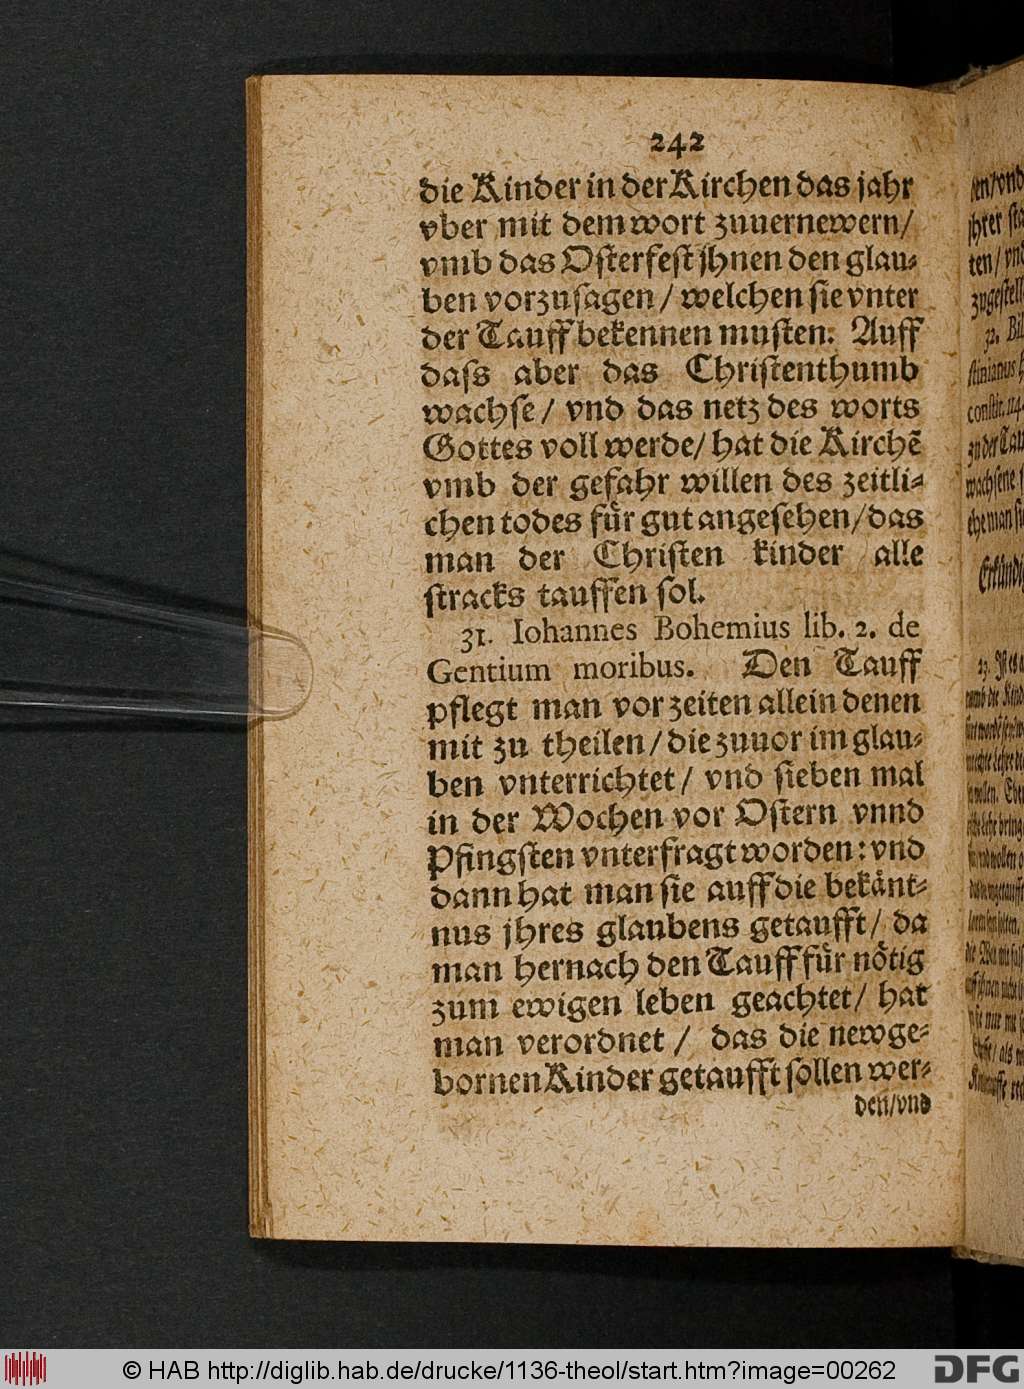 242
die Kinder in der Kirchen das jahr
vber mit dem wort zuuernewern/
vmb das Osterfest jhnen den glau⸗
ben vorzusagen / welchen sie vnter
der Tauff bekennen musten. Auff
dass aber das Christenthumb
wachse / vnd das netz des worts
Gottes voll werde/ hat die Kirchẽ
vmb der gefahr willen des zeitli⸗
chen todes fuͤr gut angesehen/das
man der Christen kinder alle
stracks tauffen sol.
31. Iohannes Bohemius lib. 2. de
Gentium moribus. Den Tauff
pflegt man vor zeiten allein denen
mit zu theilen/die zuuor im glau⸗
ben vnterrichtet/ vnd sieben mal
in der Wochen vor Ostern vnnd
Pfingsten vnterfragt worden: vnd
dann hat man sie auff die bekaͤnt⸗
nus jhres glaubens getaufft/ da
man hernach den Tauff fuͤr noͤtig
zum ewigen leben geachtet/ hat
man verordnet / das die newge⸗
bornen Kinder getaufft sollen wer⸗
den/vnd
© HAB http://diglib.hab.de/drucke/1136-theol/start.htm?image=00262
DFG